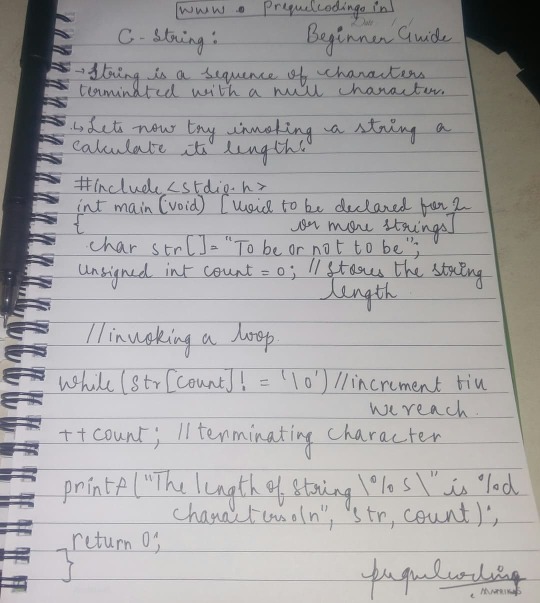 www.prequelcoding.in
C-String: Beginner Guide
→String is a sequence of characters
terminated with a null character.
↳Lets now try invoking a string a
calculate its length!
#include<stdio.h>
int main(void) [void to be declared for 2
{ or more strings]
char str[]="To be or not to be";
unsigned int count=0; //Stores the string
length
//invoking a loop
while(str[count]!='\0')//increment till
we reach
++count; //terminating character
printf("The length of string \"%s\" is %d
characters\n", str, count);
return 0;
}